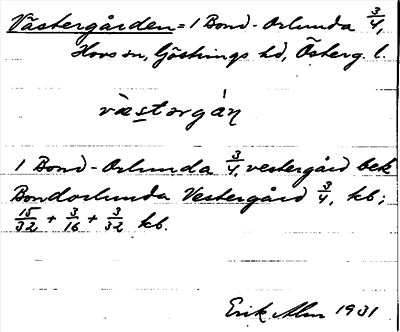 Västergården = 1 Bond-Orlunda 3/4,
Hovs sn, Göstrings hd, Österg. l.
västərgán
1 Bond-Orlunda 3/4, vestergård bek
Bondorlunda Vestergård 3/4, kb;
15/32 + 3/16 + 3/32 kb.
Erik Alm 1931